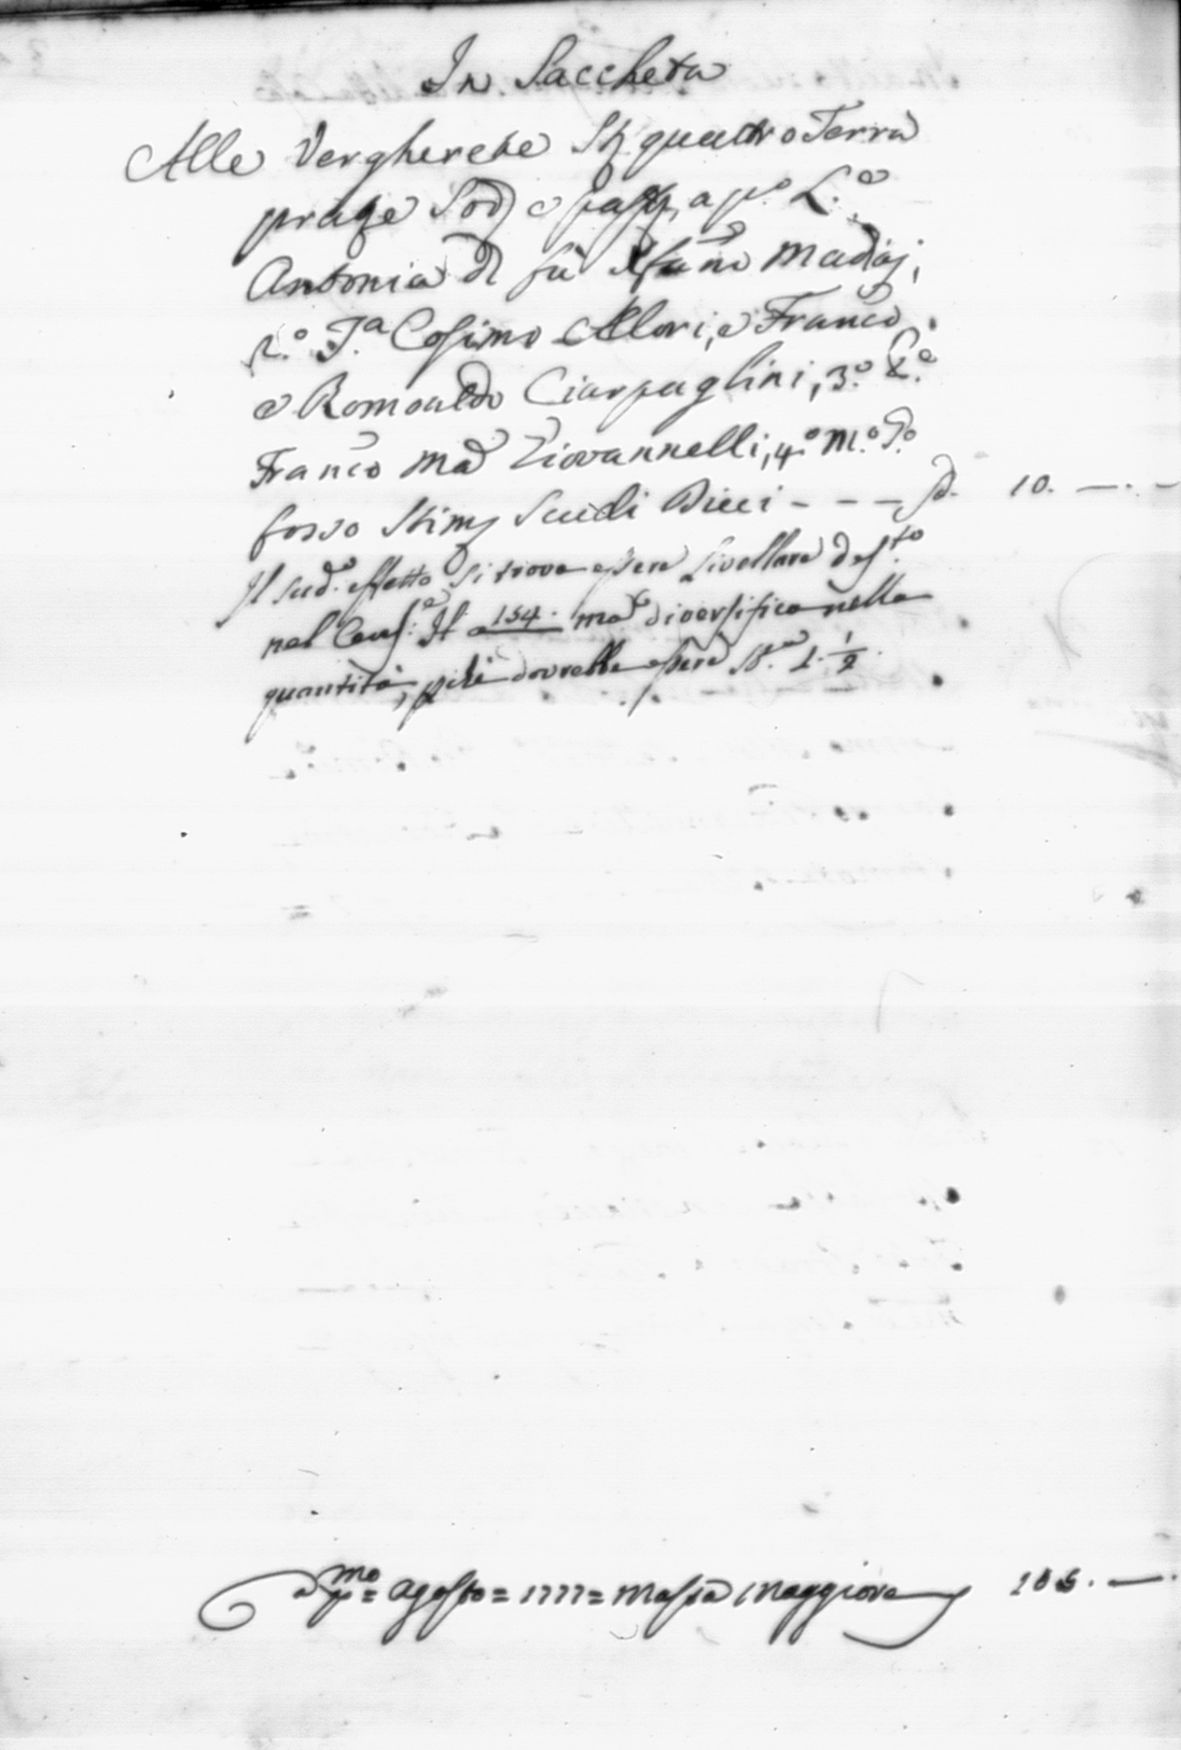 In Saccheta
Alle Vergherete St. quattro Terra
prate Sod, e pastu, a p.o L.o
Antonia di fu Stefano Madiaj,
2.o J.a Cosimo Alori, e Franco
e Romoaldo Ciarpaglini, 3.o L.o
Franco Ma Giovannelli, 4.o M.o P.o
fosso Stim Scudi Dieci - - - sd. 10. —. —
Il sud.o effetto si trova essere Livellare d
nel Cens: It a 154. ma diversifica nella
quantità, che dovrebbe essere St.a 1. 1/2.
a p.mo = Agosto = 1777 = Massa Maggiore 106. —.